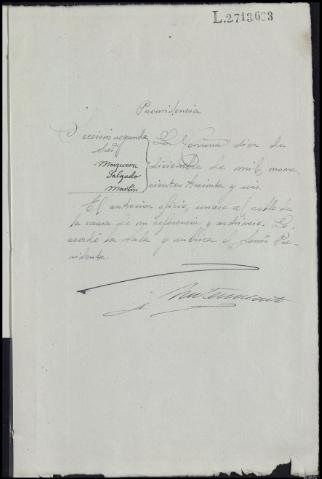 L.2713,603
Providencia
Sección segunda
Sres
Maquiera
Salgado
Martín
La Coruña diez de
diciembre de mil nove
cientos treinta y seis
El anterior oficio, únase al rollo de
la causa de su referencia y archívese. Lo
acordó la Sala y rubrica el Señor Pre
sidente